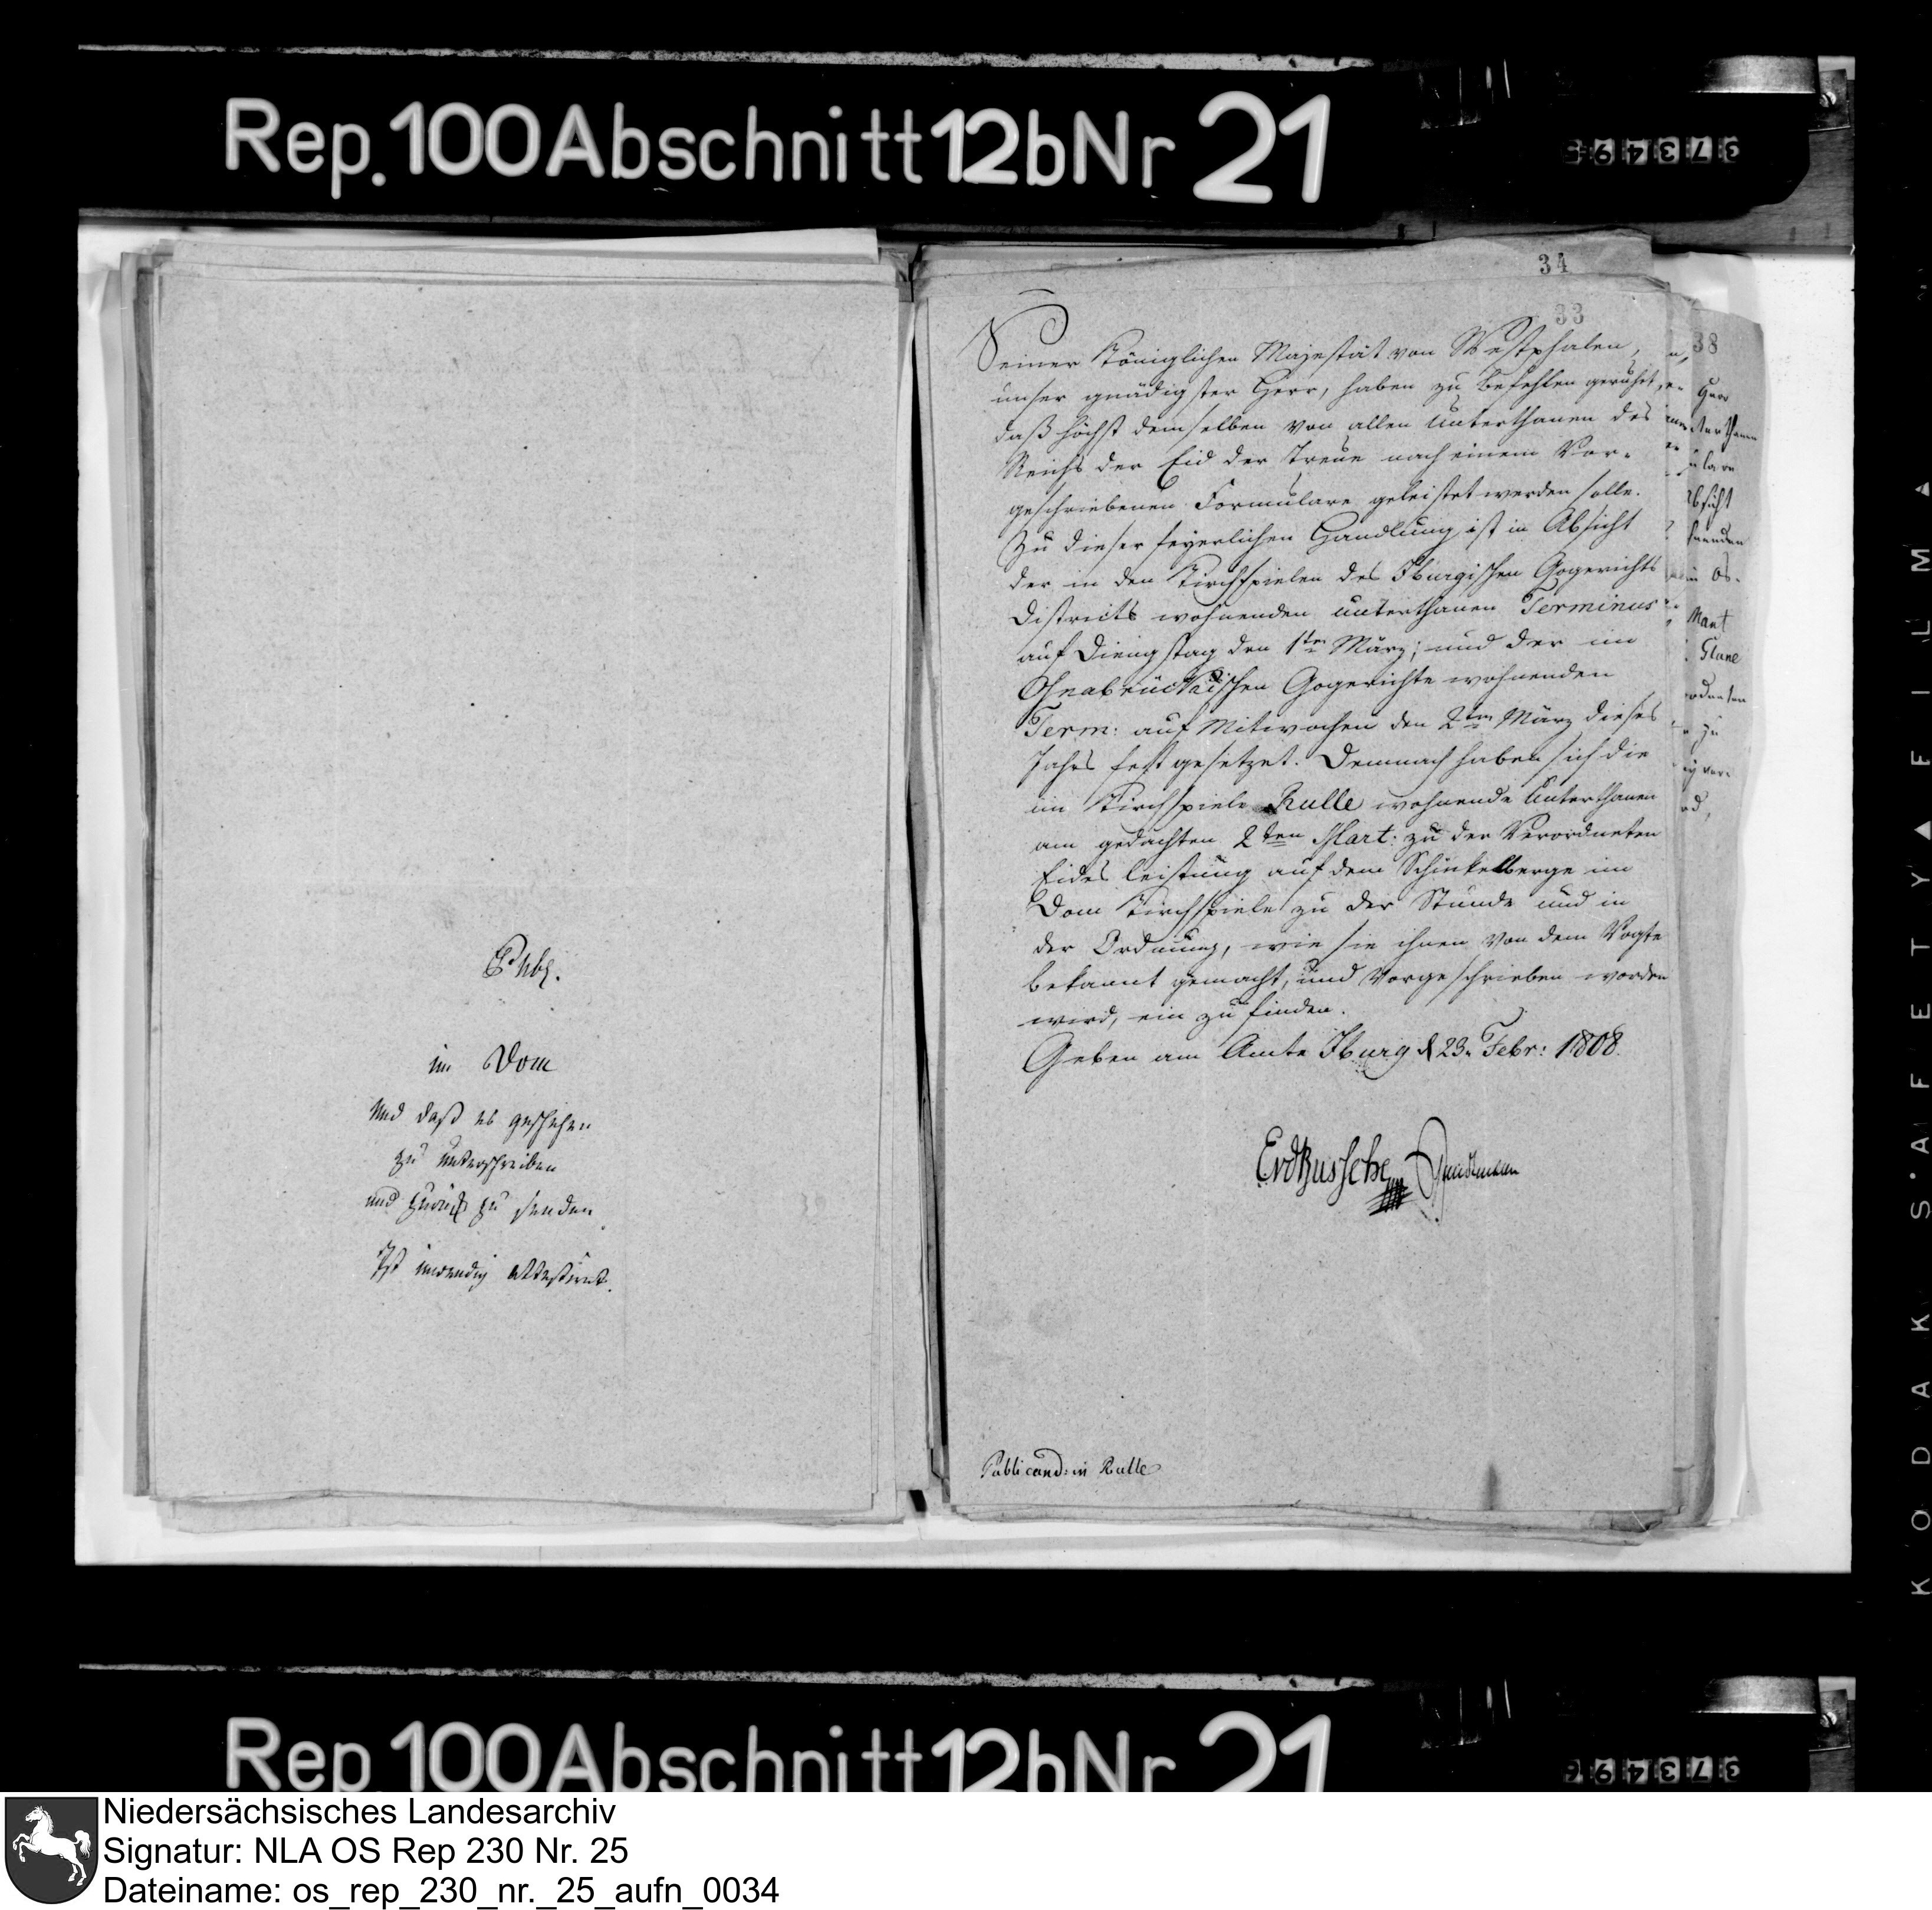 Rep. 100 Abschnitt 12b Nr 21
Publ.
im Dom
und daß es geschehen
zu unterschreiben
und zurück zu senden.
Ist inwendig attestirt.
34
33
38
Seiner Königlichen Majestät von Westphalen,
unser gnädigster Herr, haben zu befehlen geruhet,
daß höchst demselben von allen Unterthanen des
Reichs der Eid der Treue nach einem Vor-
geschriebenen Formulare geleistet werden solle.
Zu dieser feyerlichen Handlung ist in Absicht
der in den Kirchspielen des Iburgischen Gogerichts
Districts wohnenden Unterthanen Terminus
auf Diengstag den 1ten März; und der im
Osnabrückischen Gogerichte wohnenden
Term: auf Mitwochen den 2ten März dieses
Jahrs fest gesetzet. Demnach haben sich die
im Kirchspiele Rulle wohnende Unterthanen
am gedachten 2ten Mart: zu der Verordneten
Eides leistung auf dem Schinkelberge im
Dom Kirchspiele zu der Stunde und in
der Ordnung, wie sie ihnen von dem Vogte
bekannt gemacht, und vorgeschrieben worden
wird, ein zu finden.
Geben am Amte Iburg d 23. Febr: 1808.
EvdBussche
Publicand: in Rulle
Rep. 100 Abschnitt 12b Nr 21
KODAK SAFETY FILM
Niedersächsisches Landesarchiv
Signatur: NLA OS Rep 230 Nr. 25
Dateiname: os_rep_230_nr._25_aufn_0034